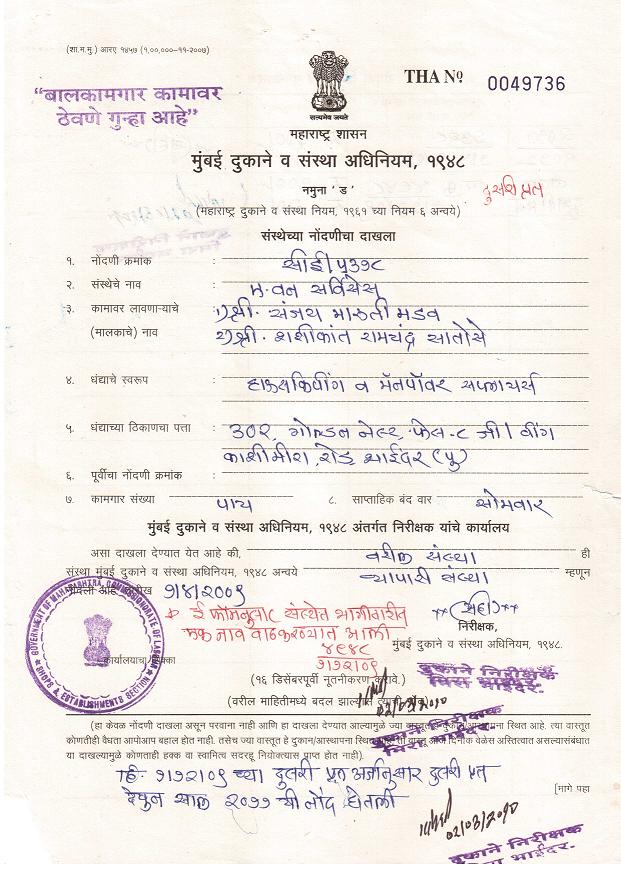 (शा.म.मु.) आरए १४५७ (१,००,०००–११–२००७)
THA Nº 0049736
"बालकामगार कामावर
ठेवणे गुन्हा आहे"
सत्यमेव जयते
महाराष्ट्र शासन
मुंबई दुकाने व संस्था अधिनियम, १९४८
नमुना 'ड'
दुसरी प्रत
(महाराष्ट्र दुकाने व संस्था नियम, १९६१ च्या नियम ६ अन्वये)
संस्थेच्या नोंदणीचा दाखला
१. नोंदणी क्रमांक :
२. संस्थेचे नाव : म. वन सर्विसेस
३. कामावर लावणाऱ्याचे : १) श्री. संजय मारुती मडव
(मालकाचे) नाव २) श्री. शशीकांत रामचंद्र सातोसे
४. धंद्याचे स्वरूप : हाऊसकिपींग व मॅनपॉवर सप्लायर्स
५. धंद्याच्या ठिकाणचा पत्ता : ३०२, गोल्डन नेस्ट, फेस-८ जी/ वींग
काशीमीरा रोड, भाईंदर (पु)
६. पूर्वीचा नोंदणी क्रमांक :
७. कामगार संख्या पाच ८. साप्ताहिक बंद वार सोमवार
मुंबई दुकाने व संस्था अधिनियम, १९४८ अंतर्गत निरीक्षक यांचे कार्यालय
असा दाखला देण्यात येत आहे की, वरील संस्था ही
संस्था मुंबई दुकाने व संस्था अधिनियम, १९४८ अन्वये व्यापारी संस्था म्हणून
नोंदली आहे
GOVERNMENT OF MAHARASHTRA, COMMISSIONORATE OF LABOUR
SHOPS & ESTABLISHMENTS SECTION
ई फॉर्मनुसार संस्थेत भागीदारीत
एक नाव वाढकरण्यात आली
४९४८
(सही)
निरीक्षक,
मुंबई दुकाने व संस्था अधिनियम, १९४८.
दुकाने निरीक्षक
मिरा भाईंदर.
(१६ डिसेंबरपूर्वी नूतनीकरण करावे.)
(वरील माहितीमध्ये बदल झाल्यास
दुकाने निरीक्षक
मिरा भाईंदर.
(हा केवळ नोंदणी दाखला असून परवाना नाही आणि हा दाखला देण्यात आल्यामुळे ज्या स्थित आहे. त्या वास्तूत
कोणतीही वैधता आपोआप बहाल होत नाही. तसेच ज्या वास्तूत हे दुकान/आस्थापना स्थित दिनांक वेळेस अस्तित्वात असल्यासंबंधात
या दाखल्यामुळे कोणताही हक्क वा स्वामित्व सदरहू नियोक्त्यास प्राप्त होत नाही).
च्या दुसरी प्रत अर्जानुसार दुसरी प्रत
देवुन साल २०११ ची नोंद घेतली
[मागे पहा
02/03/2010
दुकाने निरीक्षक
मिरा भाईंदर.